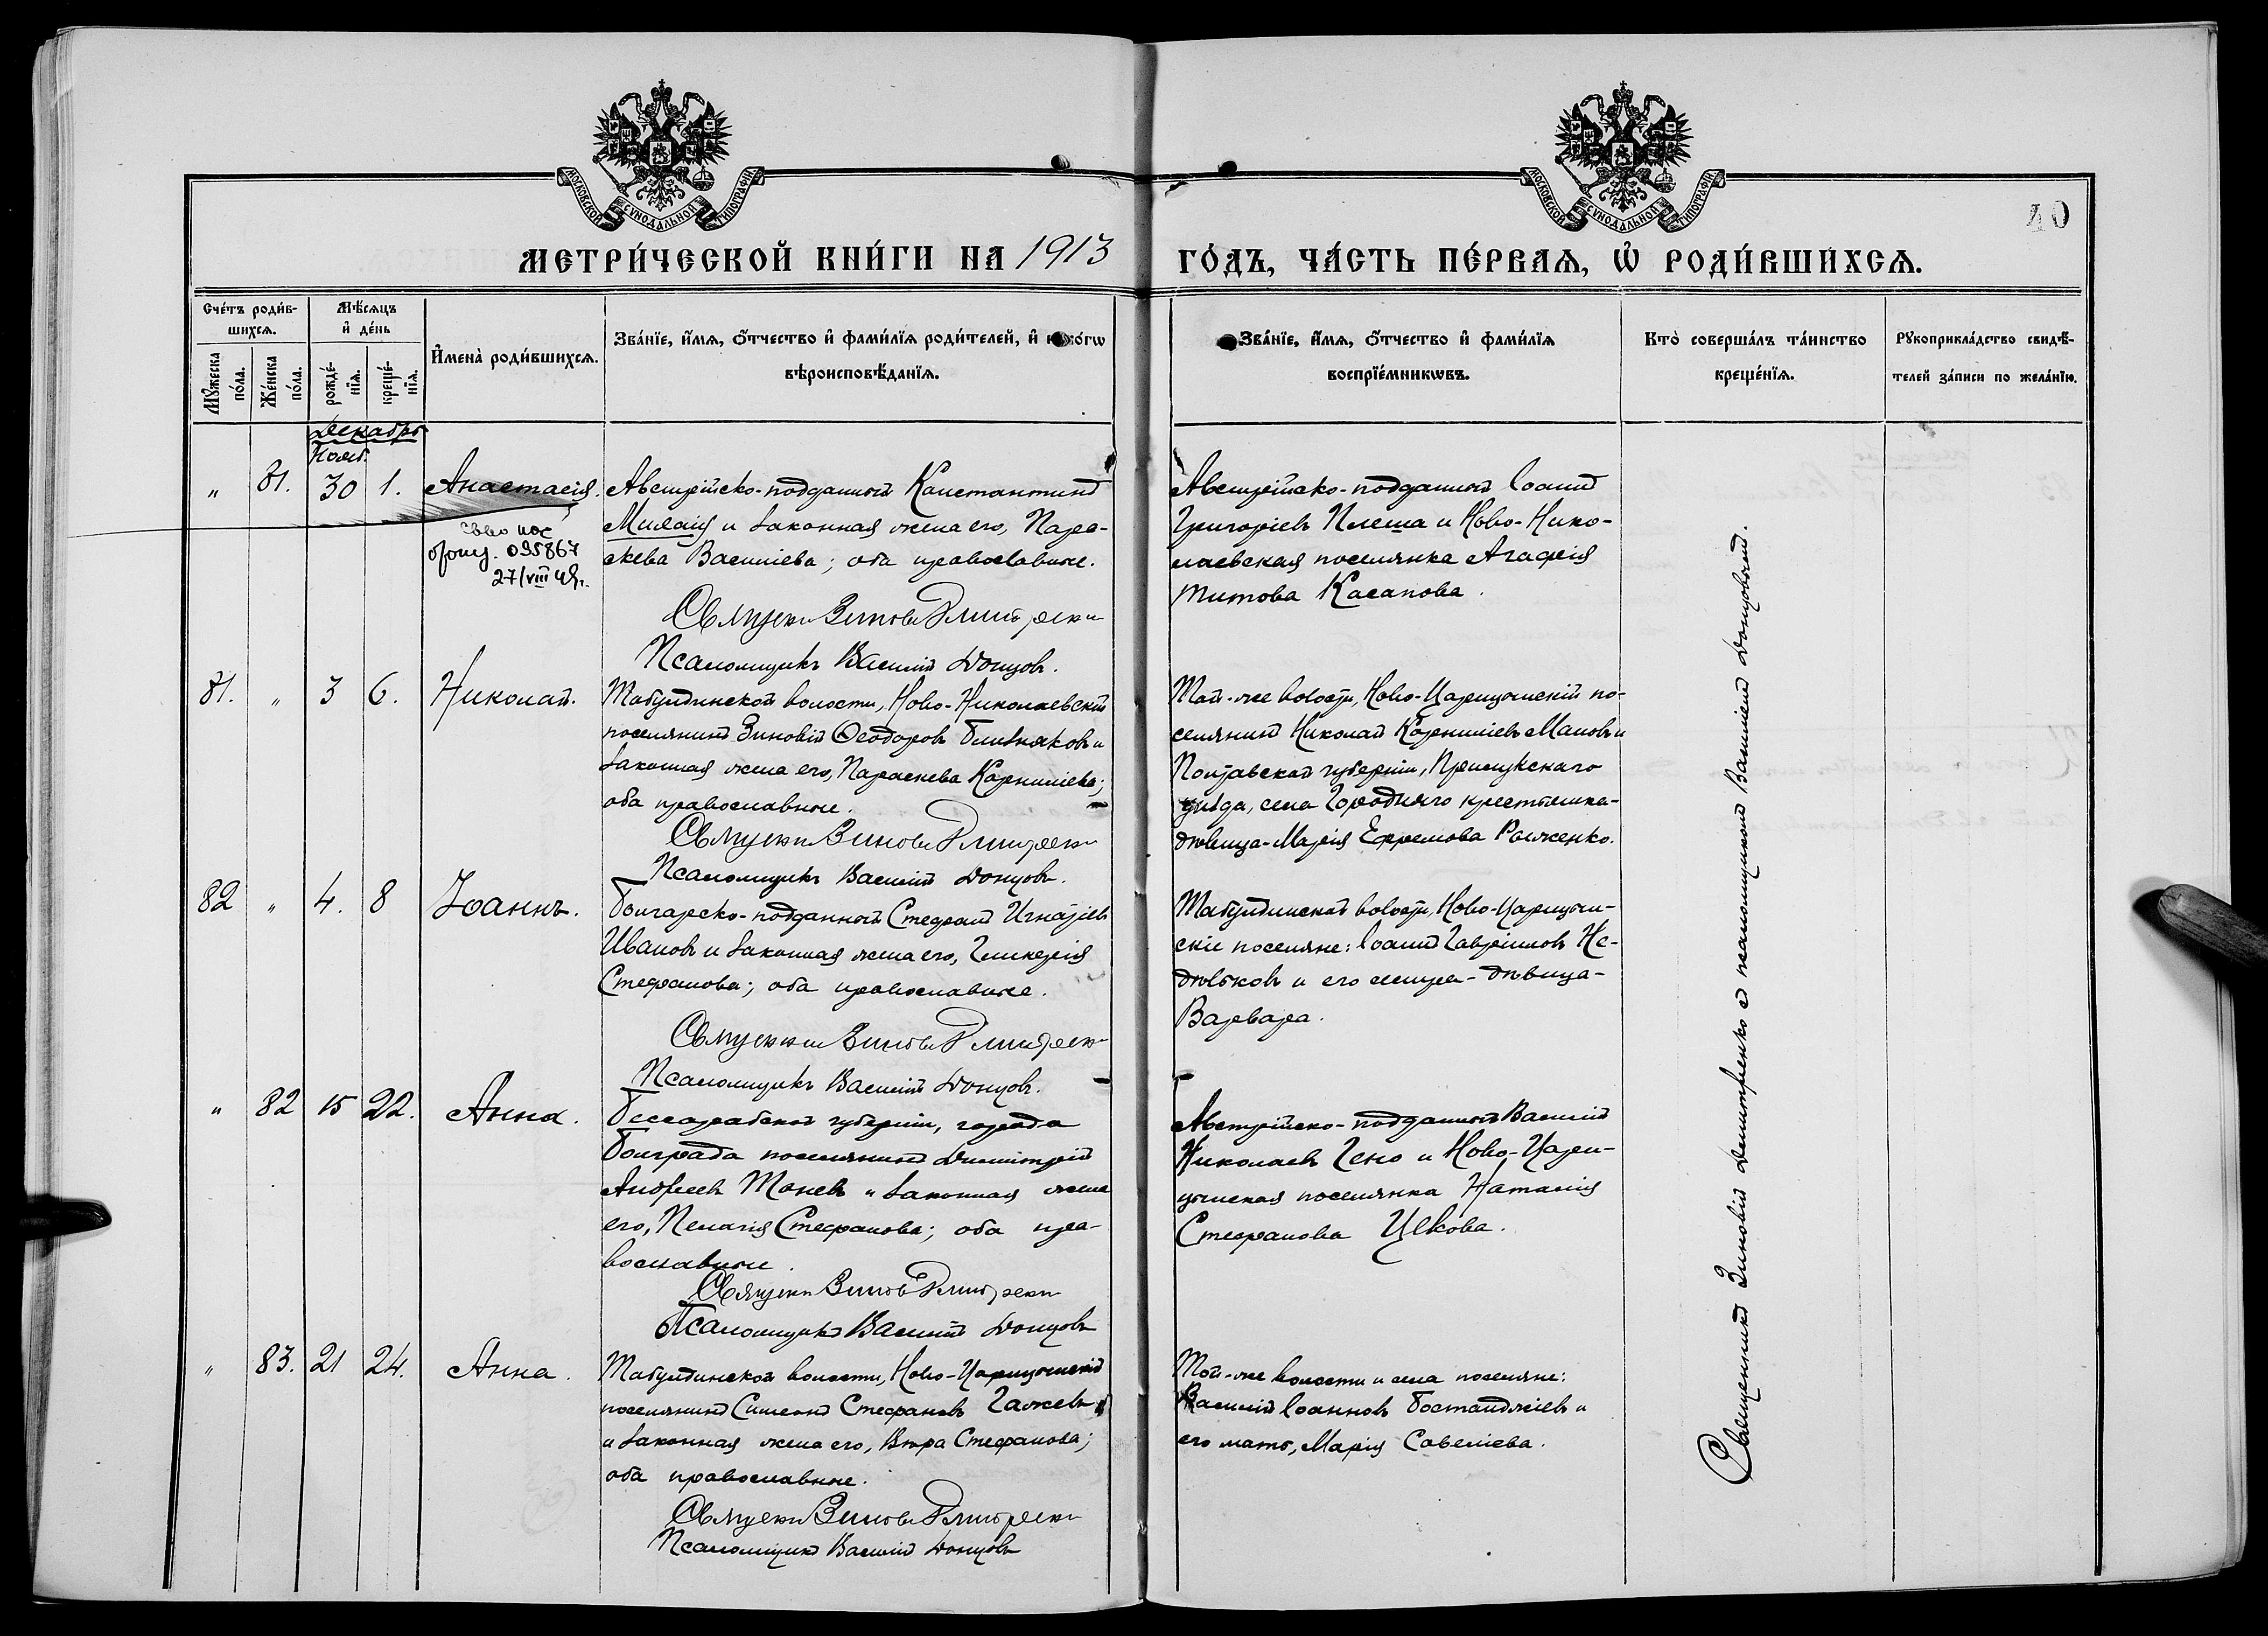 МОСКОВСКОЙ СѴНОДАЛЬНОЙ ТИПОГРАФІИ
МОСКОВСКОЙ СѴНОДАЛЬНОЙ ТИПОГРАФІИ
40
МЕТРИ́ЧЕСКОЙ КНИ́ГИ НА 1913 ГО́ДЪ, ЧА́СТЬ ПЕ́РВАѦ, Ѽ РОДИ́ВШИХСѦ.
Сче́тъ роди́в-
шихсѧ.
Мꙋ́жеска
по́ла.
Же́нска
по́ла.
Мѣ́сѧцъ
и҆ де́нь
рожде́-
нїѧ.
креще́-
нїѧ.
И҆мена̀ роди́вшихсѧ.
Зва́нїе, и҆́мѧ, ѻ҆́тчество и҆ фами́лїѧ роди́телей, и҆ како́гѡ
вѣроисповѣ́данїѧ.
Зва́нїе, и҆́мѧ, ѻ҆́тчество и҆ фами́лїѧ
воспрїе́мникѡвъ.
Кто̀ соверша́лъ та́инство
креще́нїѧ.
Рꙋкоприкла́дство свидѣ́-
телей за́писи по жела́нїю.
Декабрь
Нояб.
" 81. 30 1. Анастасія.
095867
27/VIII 49г.
Австрійско-подданный Константинъ
Михаіц и законная жена его, Пара-
скева Василіева; оба православные.
Священникъ Зиновій Дмитренко
Псаломщикъ Василій Донцовъ.
Австрійско-подданный Іоаннъ
Григоріевъ Плеша и Ново-Нико-
лаевская поселянка Агафія
Титова Касапова.
81. " 3 6. Николай.
Табулдинской волости, Ново-Николаевскій
поселянинъ Зиновій Ѳеодоровъ Близняковъ и
законная жена его, Параскева Корниліева;
оба православные.
Священникъ Зиновій Дмитренко
Псаломщикъ Василій Донцовъ.
Той-же волости, Ново-Царицынскій по-
селянинъ Николай Корниліевъ Мановъ и
Полтавской губерніи, Прилукскаго
уѣзда, села Городняго крестьянка-
дѣвица-Марія Ефремова Рыженко.
82 " 4. 8 Іоаннъ.
Болгарско-подданный Стефанъ Игнатіевъ
Ивановъ и законная жена его, Гликерія
Стефанова; оба православные.
Священникъ Зиновій Дмитренко
Псаломщикъ Василій Донцовъ.
Табулдинской волости, Ново-Царицын-
скіе поселяне: Іоаннъ Гавріиловъ Не-
дѣлковъ и его сестра-дѣвица-
Варвара.
" 82 15 22. Анна.
Бессарабской губерніи, города
Болграда поселянинъ Димитрій
Андреевъ Тоневъ и законная жена
его, Пелагія Стефанова; оба пра-
вославные.
Священникъ Зиновій Дмитренко
Псаломщикъ Василій Донцовъ
Австрійско-подданный Василій
Николаевъ Гено и Ново-Цари-
цынская поселянка Наталія
Стефанова Цекова.
" 83. 21 24. Анна.
Табулдинской волости, Ново-Царицынскій
поселянинъ Симеонъ Стефановъ Галжевъ
и законная жена его, Вѣра Стефанова;
оба православные.
Священникъ Зиновій Дмитренко
Псаломщикъ Василій Донцовъ
Той-же волости и села поселяне:
Василій Іоанновъ Бостанджіевъ и
его мать, Марія Савеліева.
Священникъ Зиновій Димитренко съ псаломщикомъ Василіемъ Донцовымъ.